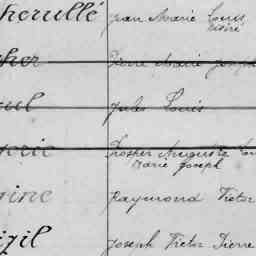 herullé Jean Marie Louis
Désiré
her Pierre Marie Joseph
Jules Louis
erie Prosper Auguste
Marie Joseph
ine Raymond Victor
igil Joseph Victor Pierre